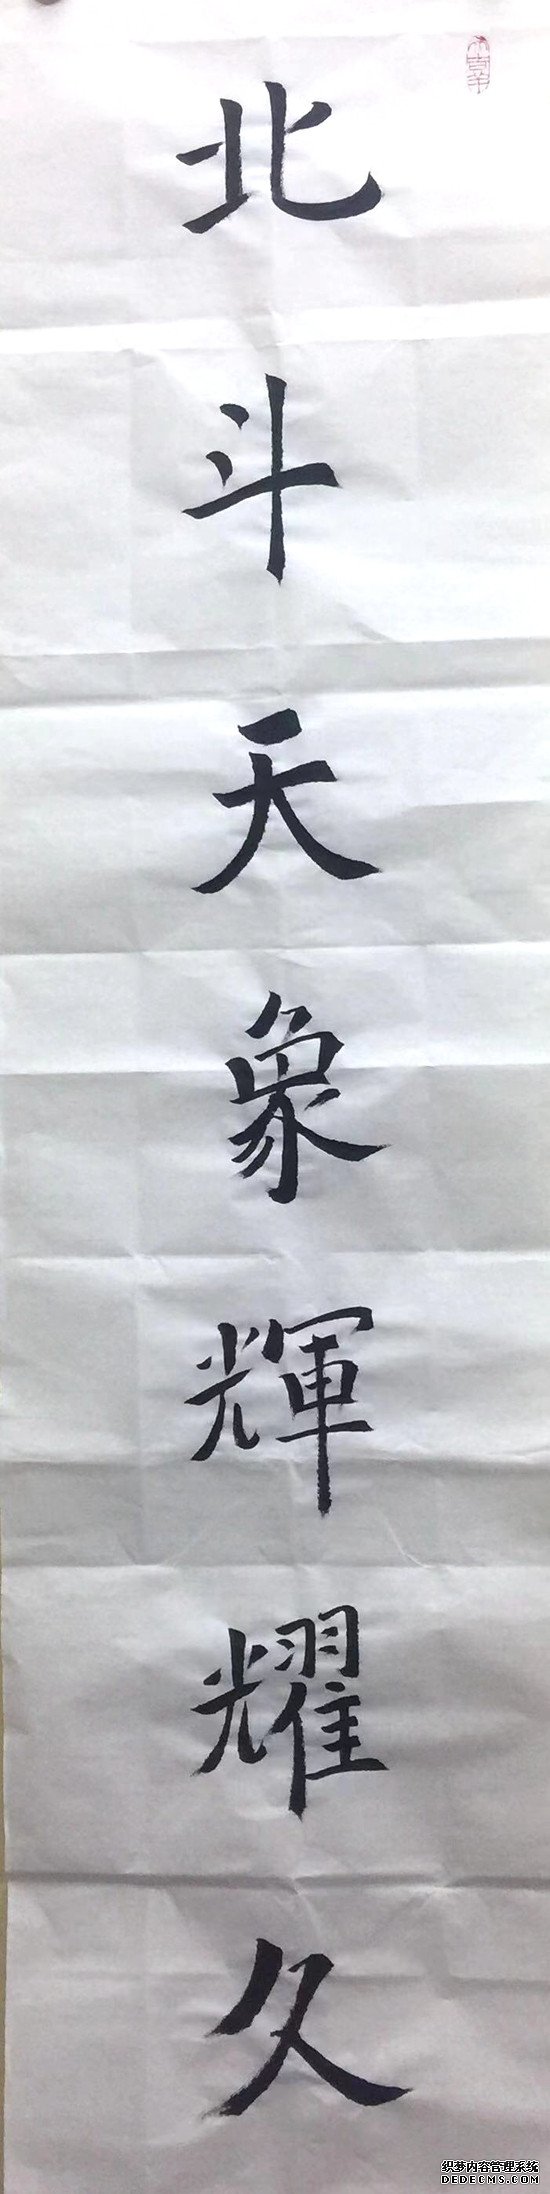 北斗天象輝耀久
织梦内容管理系统
DEDECMS.COM